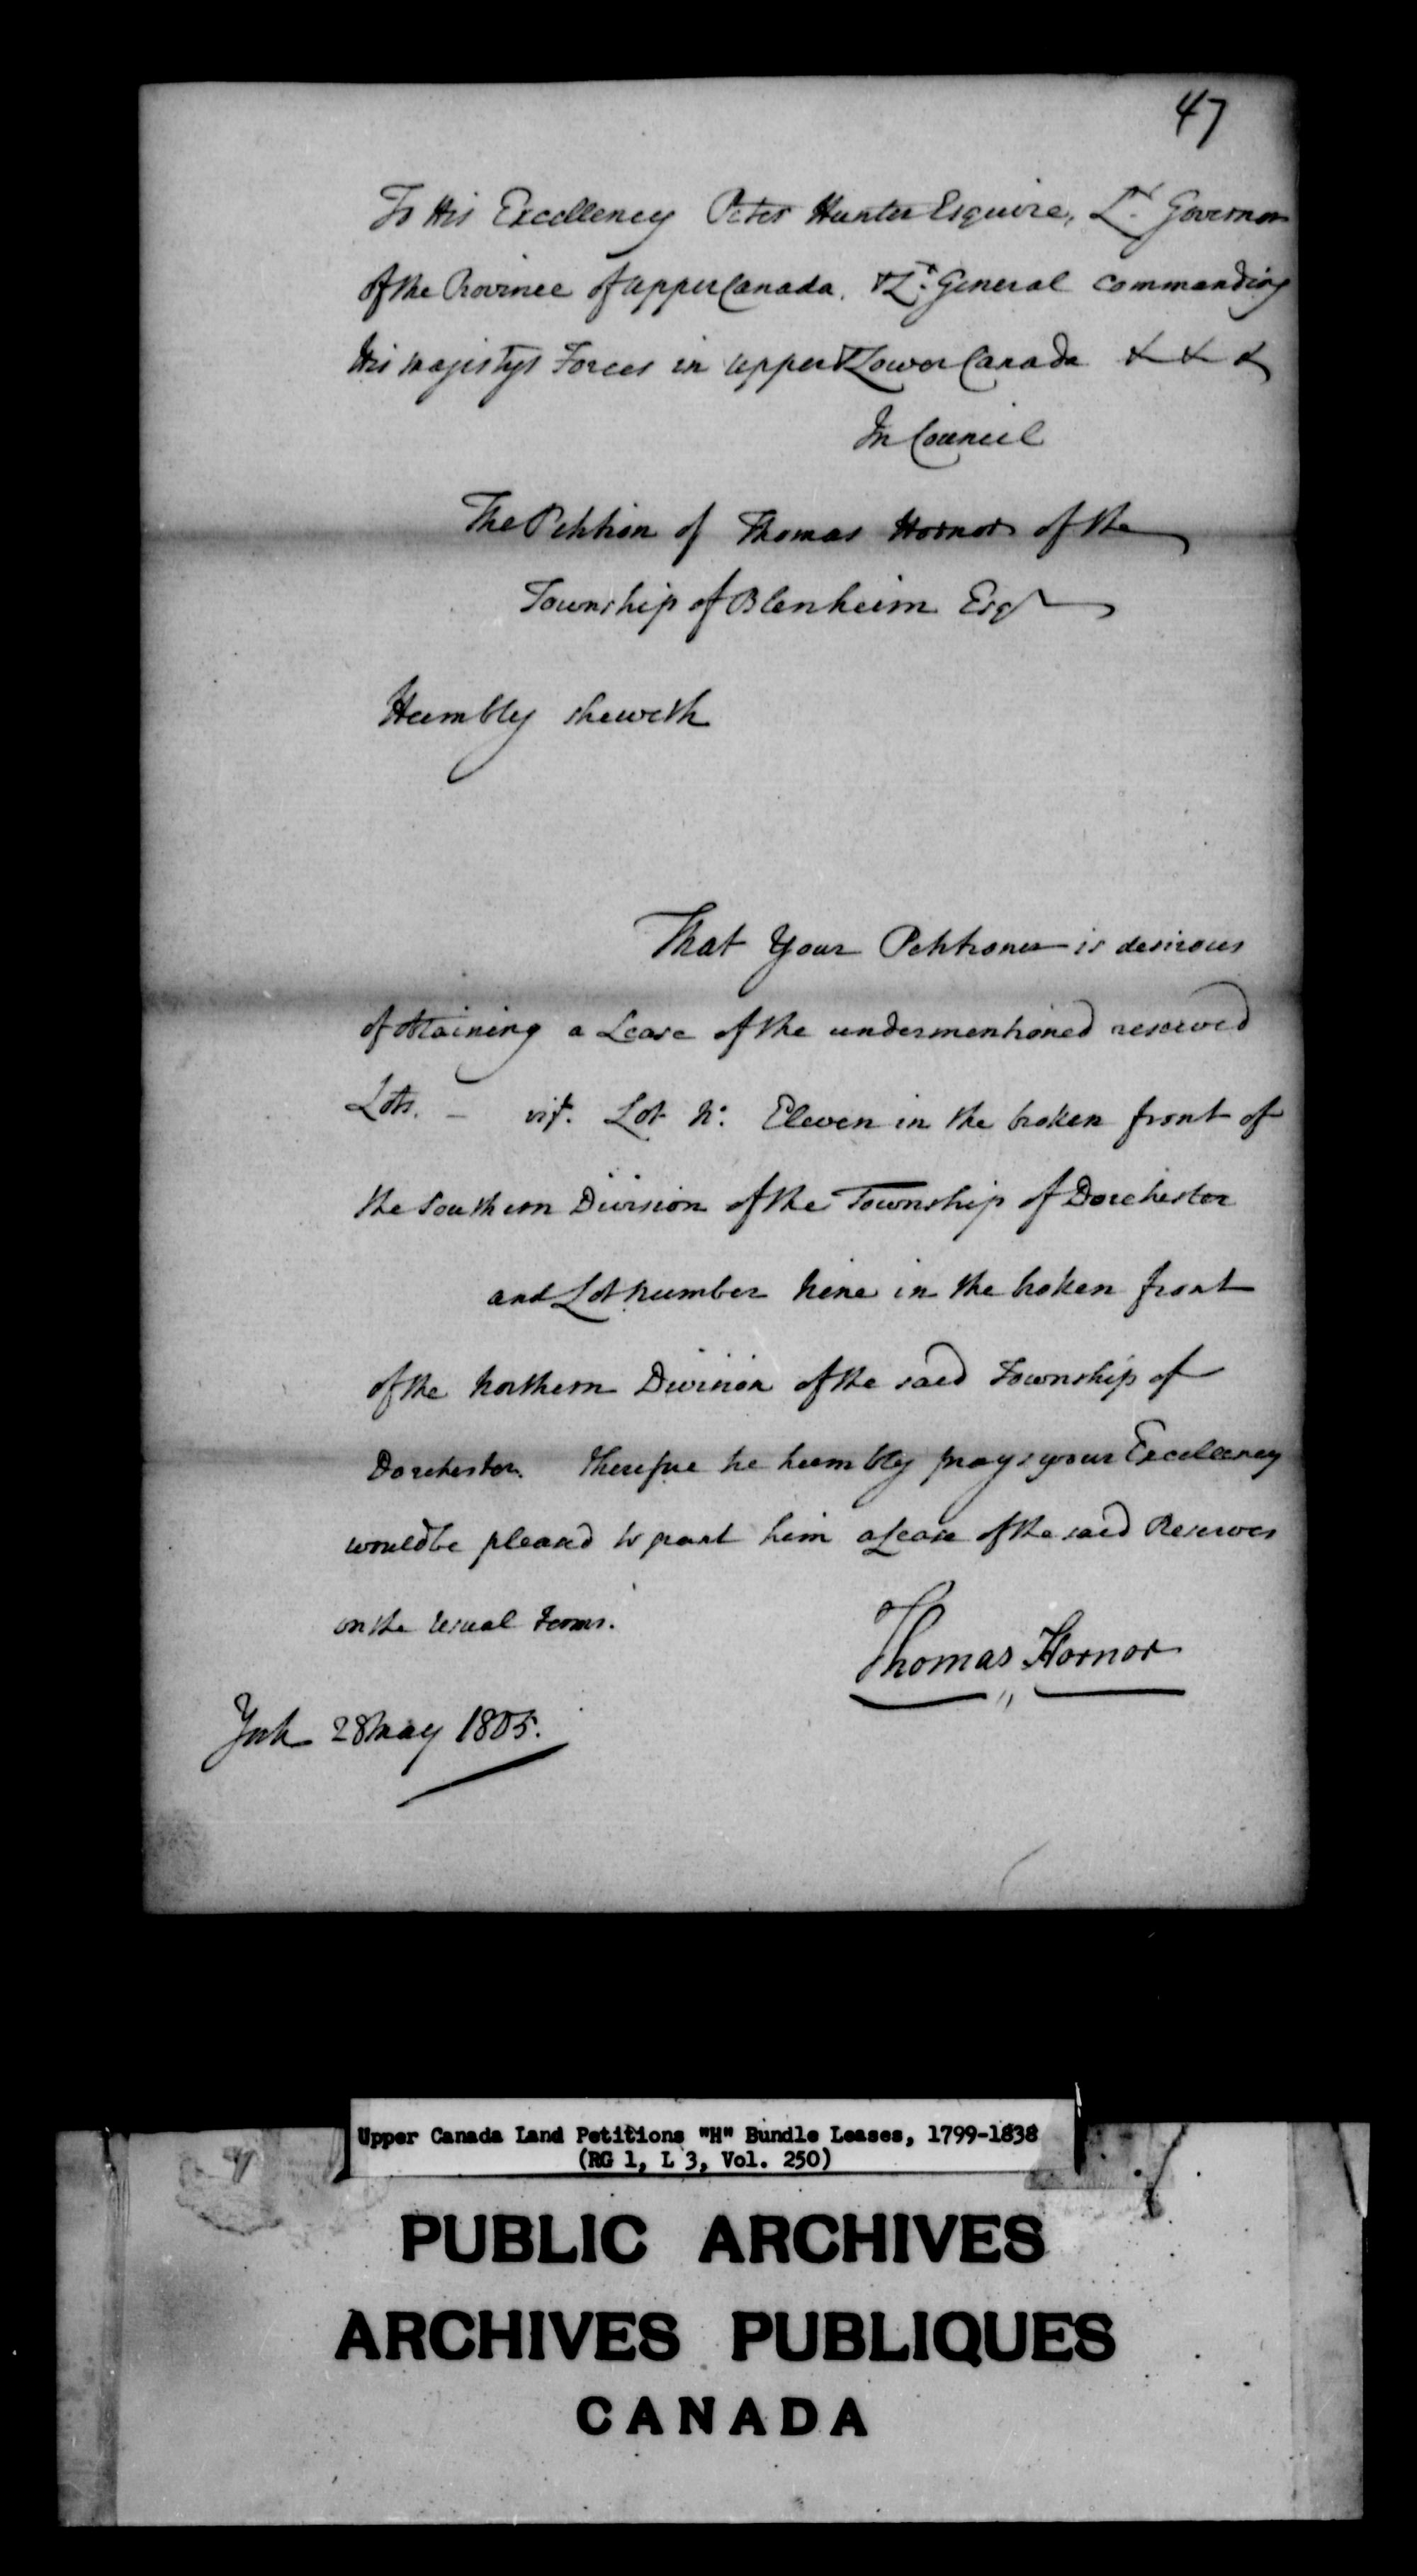 47
To His Excellency Peter Hunter Esquire, Lt. Governor
of the Province of Upper Canada, & Lt. General commanding
His Majestys Forces in Upper & Lower Canada & & &
In Council
The Petition of Thomas Hornor of the
Township of Blenheim Esqr
Humbly sheweth
That Your Petitioner is desirous
of obtaining a Lease of the undermentioned reserved
Lots. – vizt. Lot No. Eleven in the broken front of
the Southern Division of the Township of Dorchester
and Lot number Nine in the broken front
of the Northern Division of the said Township of
Dorchester. Therefore he humbly prays your Excellency
would be pleased to grant him a Lease of the said Reserves
on the usual Terms.
Thomas Hornor
York 28 May 1805.
Upper Canada Land Petitions "H" Bundle Leases, 1799-1838
(RG 1, L 3, Vol. 250)
PUBLIC ARCHIVES
ARCHIVES PUBLIQUES
CANADA